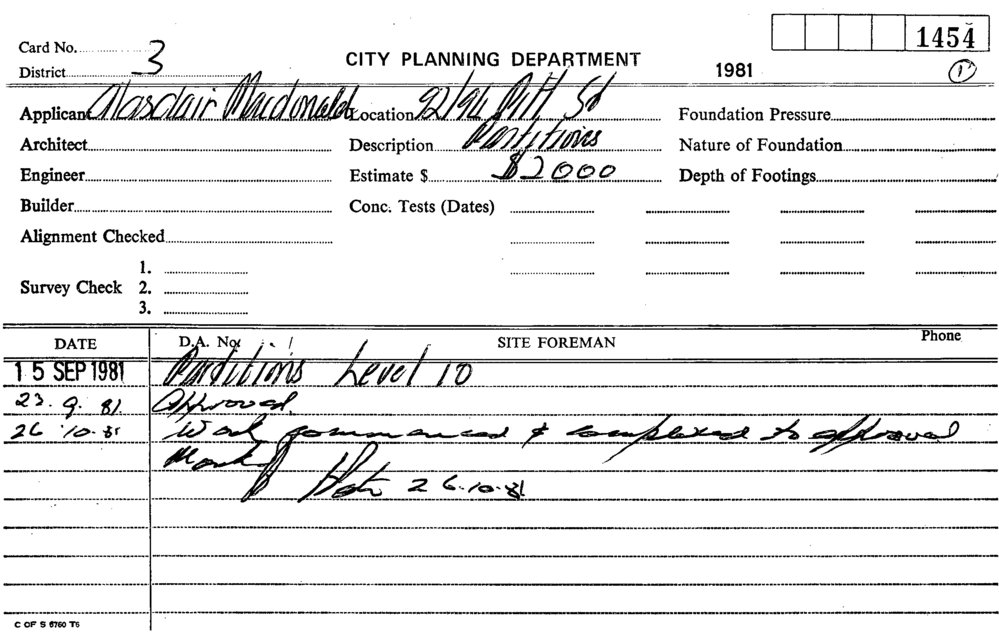 1454
Card No. 3
CITY PLANNING DEPARTMENT
District
1981
1
Applicant Alasdair Macdonald Location 92/94 Pitt St Foundation Pressure
Architect Description Partitions Nature of Foundation
Engineer Estimate $ $2000 Depth of Footings
Builder Conc. Tests (Dates)
Alignment Checked
1.
Survey Check 2.
3.
DATE D.A. No. SITE FOREMAN Phone
15 SEP 1981 Partitions Level 10
23. 9. 81. Approved.
26.10.81 Work commenced & completed to approval
26.10.81
C OF S 6760 T6